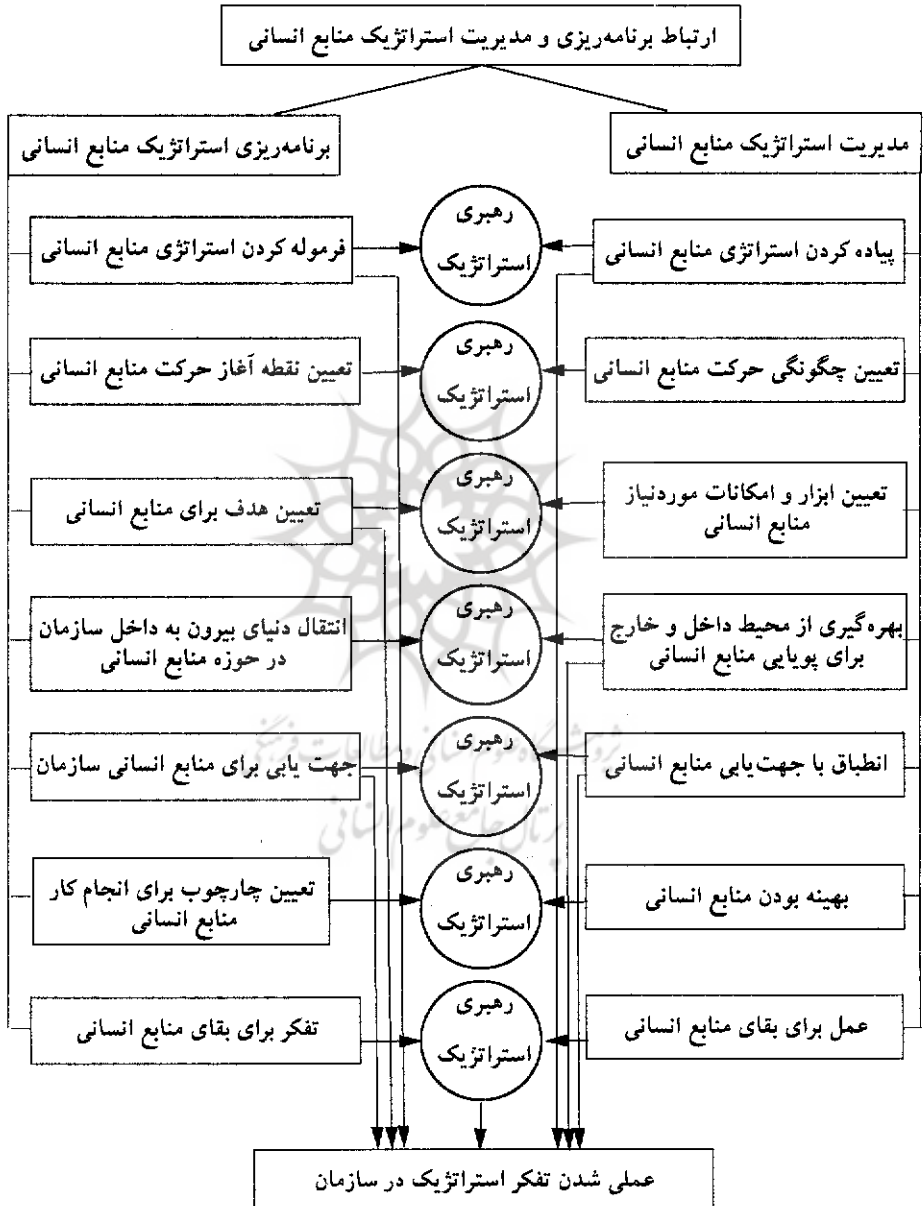 ارتباط برنامه‌ریزی و مدیریت استراتژیک منابع انسانی
مدیریت استراتژیک منابع انسانی
برنامه‌ریزی استراتژیک منابع انسانی
پیاده کردن استراتژی منابع انسانی
رهبری
استراتژیک
فرموله کردن استراتژی منابع انسانی
تعیین چگونگی حرکت منابع انسانی
رهبری
استراتژیک
تعیین نقطه آغاز حرکت منابع انسانی
تعیین ابزار و امکانات موردنیاز
منابع انسانی
رهبری
استراتژیک
تعیین هدف برای منابع انسانی
بهره‌گیری از محیط داخل و خارج
برای پویایی منابع انسانی
رهبری
استراتژیک
انتقال دنیای بیرون به داخل سازمان
در حوزه منابع انسانی
انطباق با جهت‌یابی منابع انسانی
رهبری
استراتژیک
جهت یابی برای منابع انسانی سازمان
پژوهشگاه علوم انسانی و مطالعات فرهنگی
پرتال جامع علوم انسانی
بهینه بودن منابع انسانی
رهبری
استراتژیک
تعیین چارچوب برای انجام کار
منابع انسانی
عمل برای بقای منابع انسانی
رهبری
استراتژیک
تفکر برای بقای منابع انسانی
عملی شدن تفکر استراتژیک در سازمان